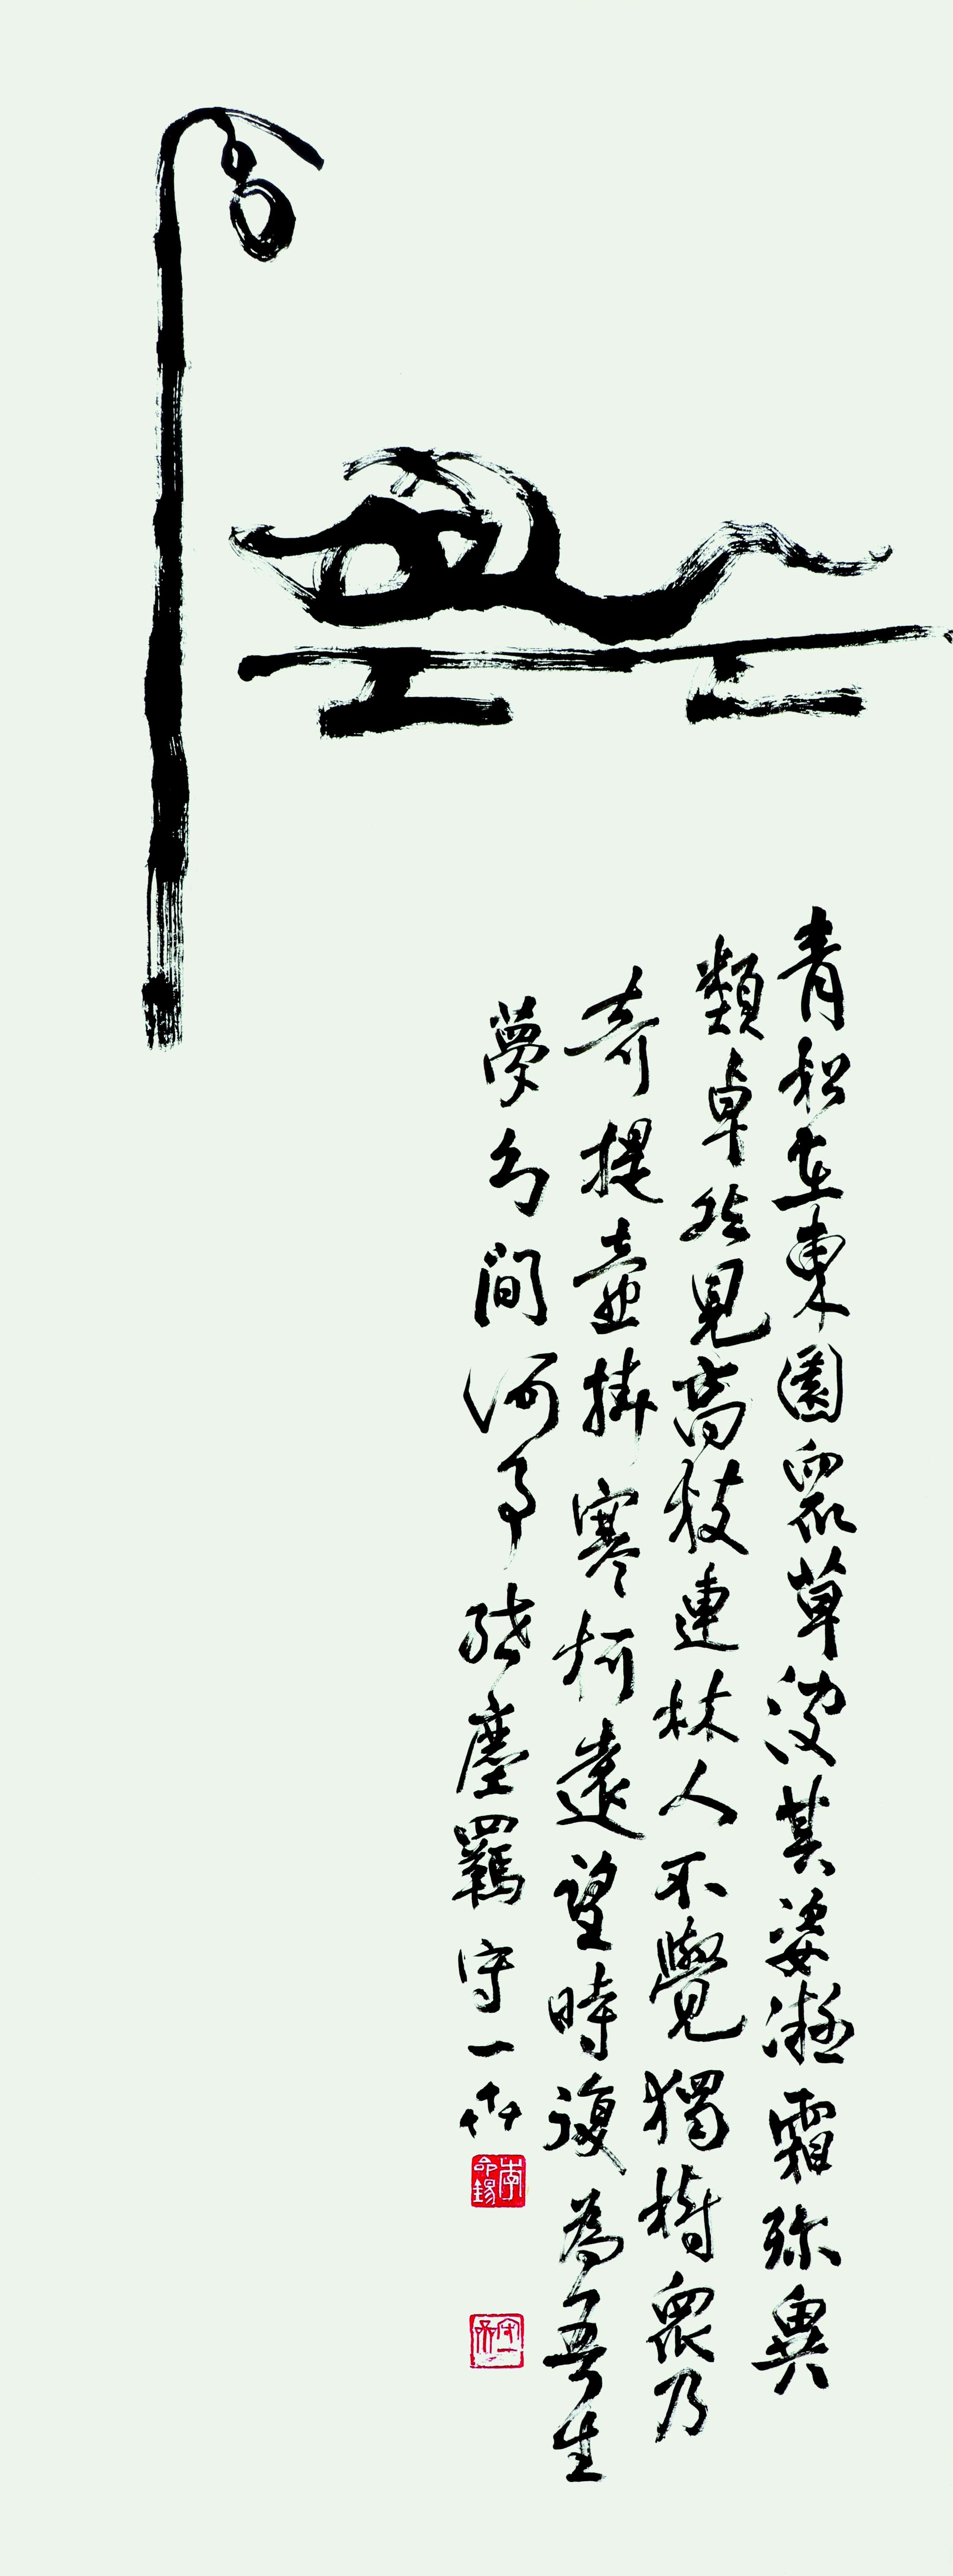 青松在東園眾草没其姿凝霜殄異
類卓然見高枝連林人不覺獨樹眾乃
奇提壺掛寒柯遠望時復為吾生
夢幻間何事紲塵羈守一
李命錫
守一